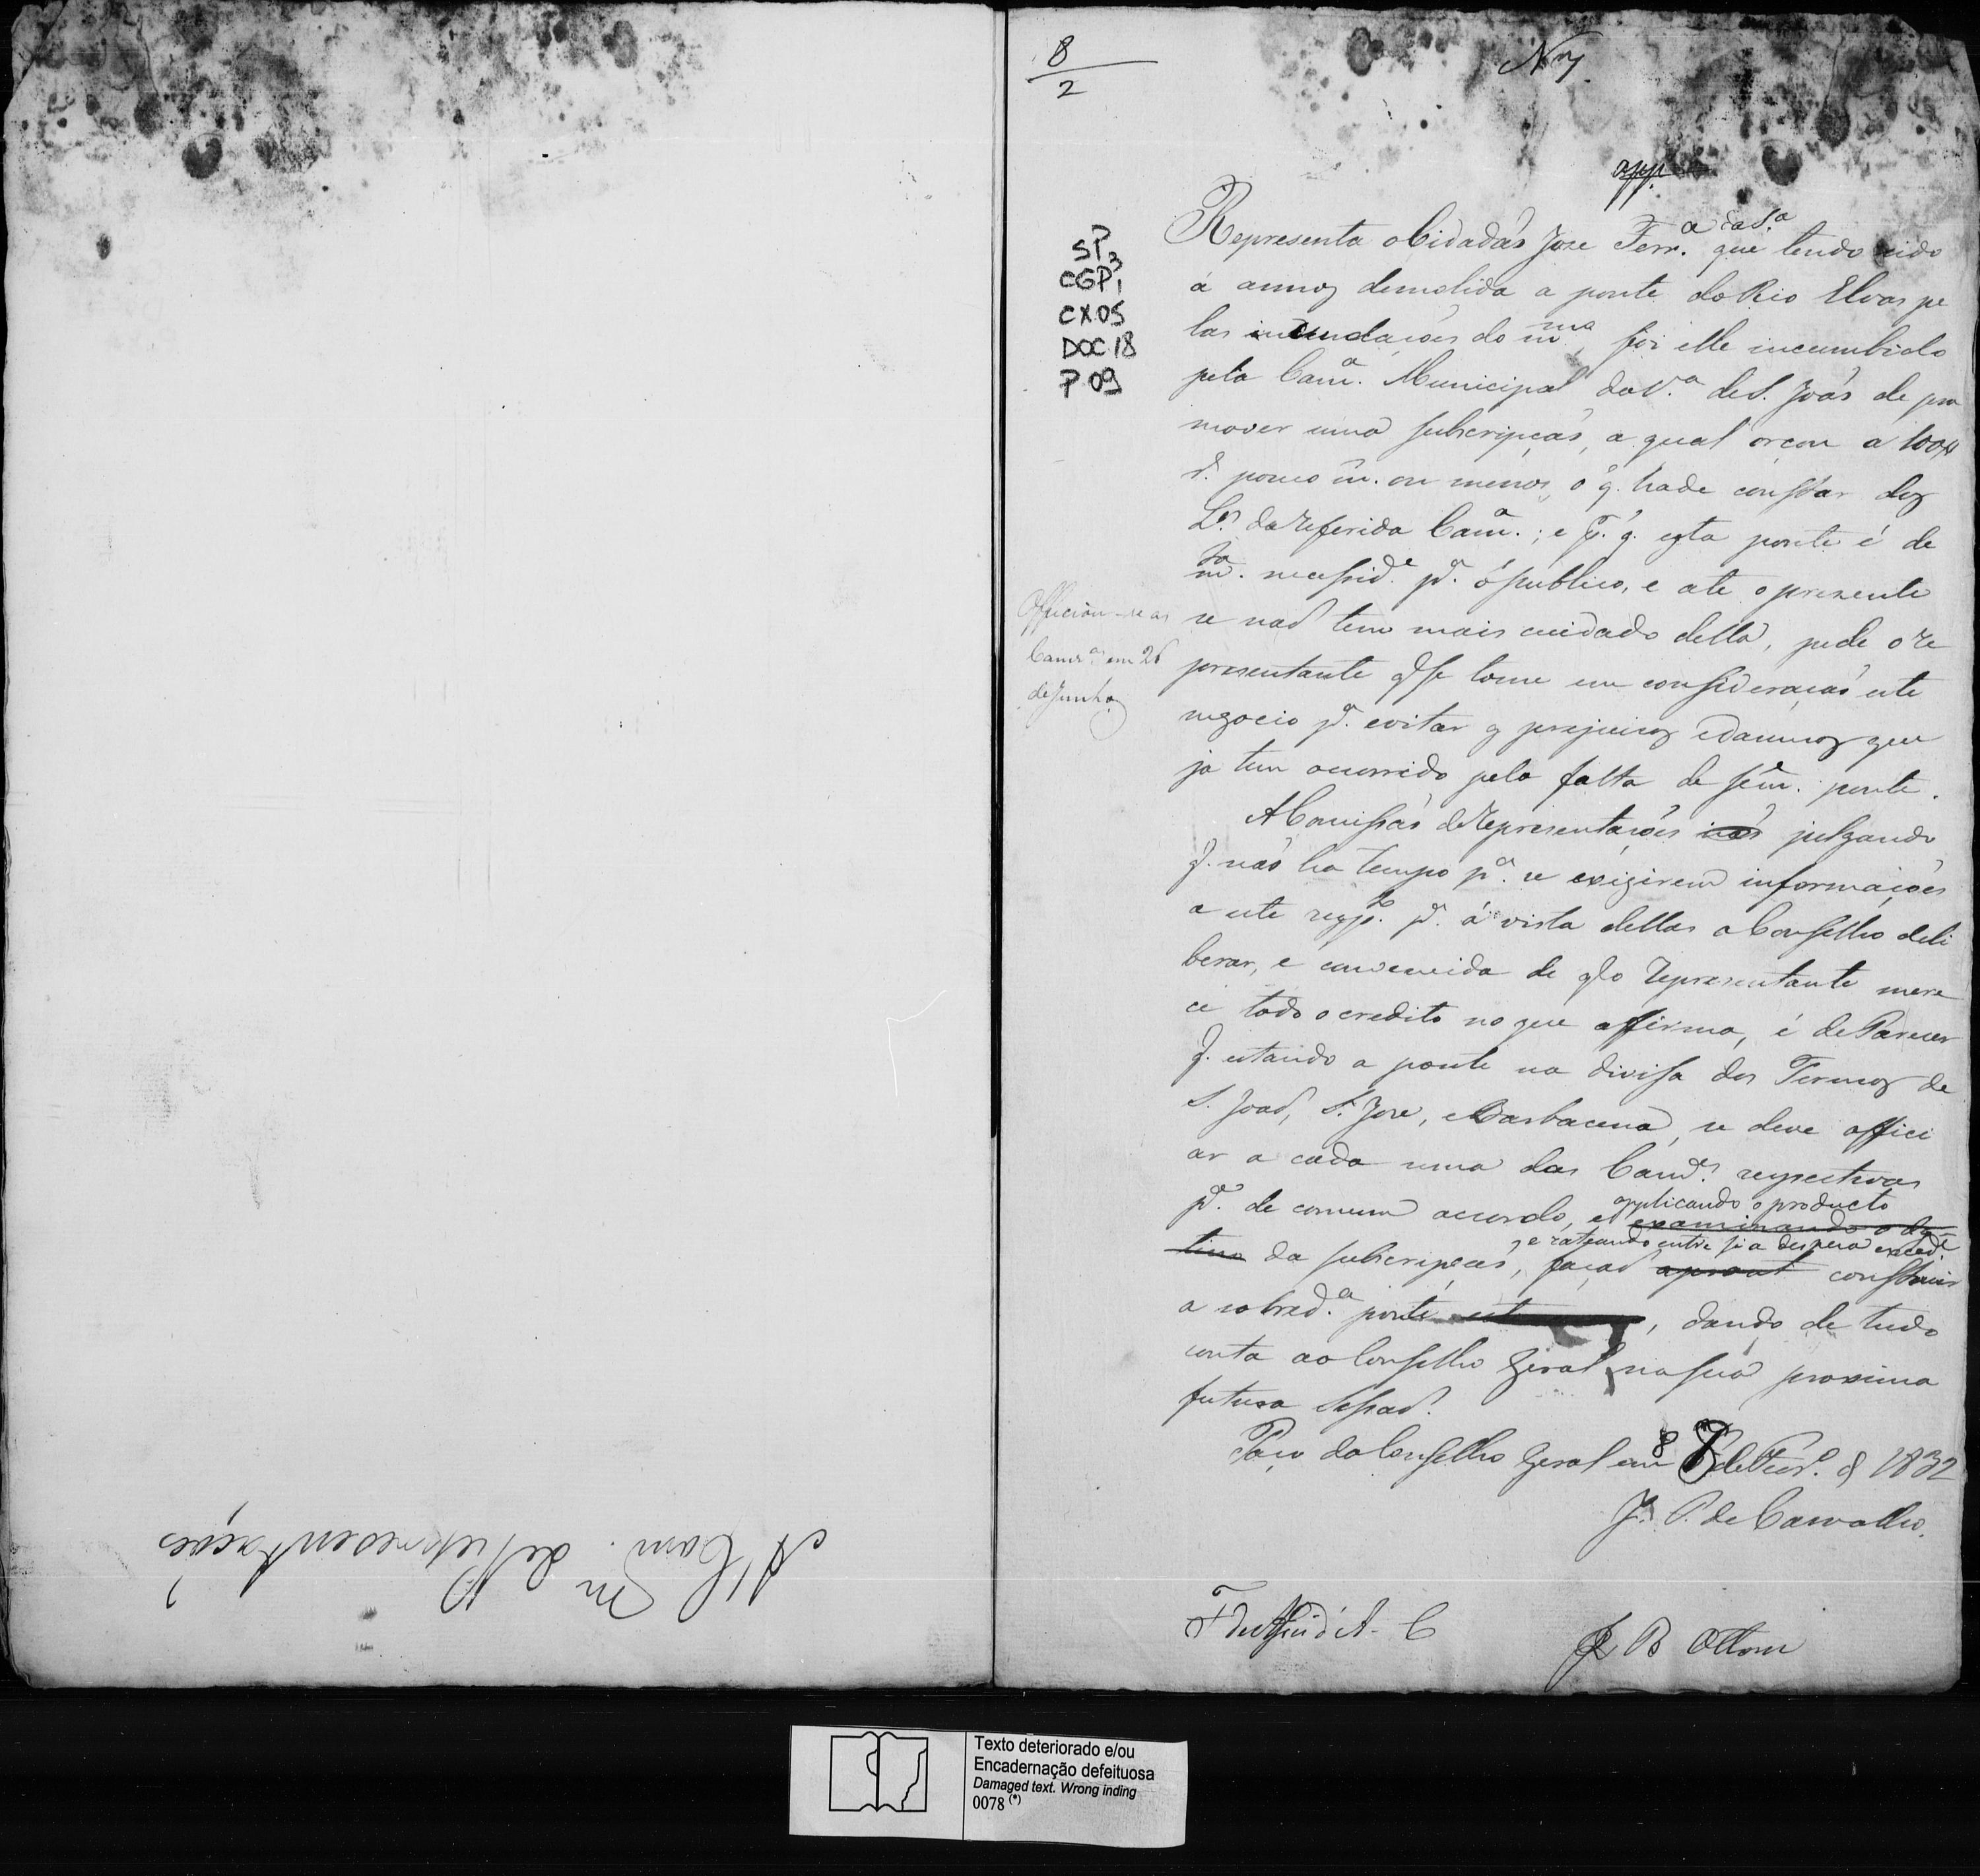 A' Com.m de Reprezentações
8
2
N 7
app.
SP3
CGP1
CX.05
DOC 18
P.09
Representa o Cidadaõ Jose Ferr.a que tendo sido
á annos demolida a ponte do Rio Elvas pe
las inundações do m.mo, foi elle incumbido
pela Cam.a Municipal da V.a de S. Joaõ de pro
mover uma subscripçaõ, a qual orçou a 100$
r. pouco m. ou menos, o q. hade constar dos
L.os da referida Cam.a; e p. q. esta ponte é de
m.ta necessid.e p.a o publico, e ate o prezente
se naõ tem mais cuidado della, pede o re
presentante q se tome em consideraçaõ este
negocio p.a evitar os prejuizos e damnos que
ja tem occorrido pela falta de sem.e ponte.
Officiou-se as
Camr.as em 26
de Junho
A Comissaõ de Representações julgando
q. naõ ha tempo p.a se exigirem informações
a este resp.to p.a á vista dellas o Conselho deli
berar, e convencida de q o representante mere
ce todo o credito no que affirma, é de Parecer
q. estando a ponte na divisa dos Termos de
S. Joaõ, S. Jose, e Barbacena, se deve offici
ar a cada uma das Cam.as respectivas
applicando o producto
p.a de comum accordo, e examinando o des
e rateando entre si a despeza exced.e
tino da subscripçaõ, façaõ construir
a sobred.a ponte, dando de tudo
conta ao Conselho Geral na sua proxima
futura Sessaõ.
Paço do Conselho Geral em 8 de Fever.o de 1832
J. P. de Carvalho.
J B Ottoni
Texto deteriorado e/ou
Encadernação defeituosa
Damaged text. Wrong inding
0078 (*)